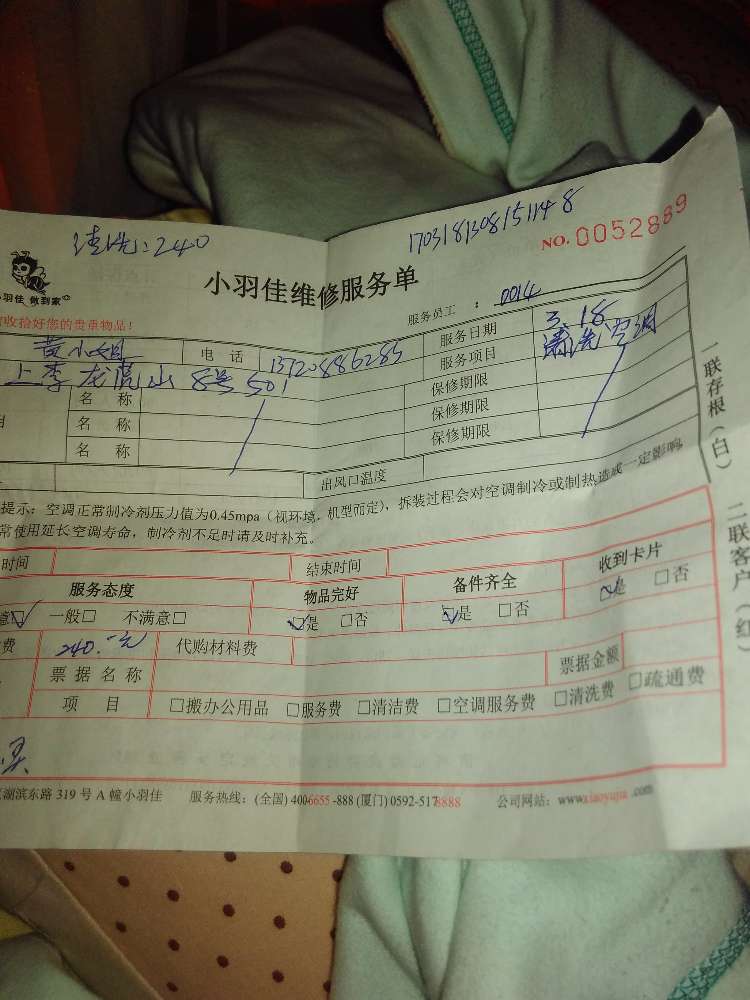 清洗:240
170318130815114 8
NO. 0052889
小羽佳 做到家
小羽佳维修服务单
收拾好您的贵重物品!
服务员工 : 0014
黄小姐 电 话 13720886285 服务日期 3.18
上李龙虎山8号501 服务项目 清洗空调
名 称 保修期限
名 称 保修期限
名 称 保修期限
出风口温度
提示:空调正常制冷剂压力值为0.45mpa(视环境,机型而定),拆装过程会对空调制冷或制热造成一定影响
常使用延长空调寿命,制冷剂不足时请及时补充。
时间 结束时间
服务态度 物品完好 备件齐全 收到卡片
意☑ 一般□ 不满意□ ☑是 □否 ☑是 □否 ☑是 □否
费 240.-元 代购材料费
票 据 名 称 票据金额
项 目 □搬办公用品 □服务费 □清洁费 □空调服务费 □清洗费 □疏通费
湖滨东路 319 号 A 幢小羽佳 服务热线:(全国) 4006655-888 (厦门) 0592-5178888 公司网站:www.xiaoyujia.com
一联存根(白) 二联客户(红)